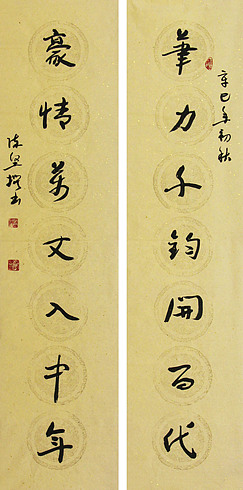 筆力千鈞開百代
辛巳年初秋
豪情萬丈入中年